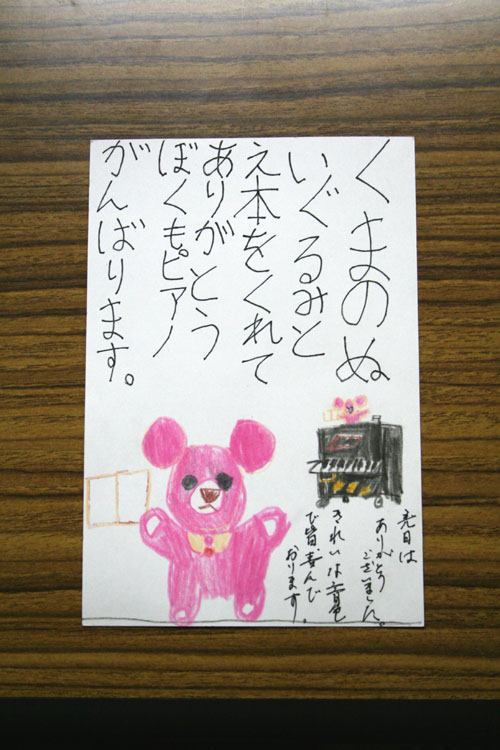 くまのぬ
いぐるみと
え本をくれて
ありがとう
ぼくもピアノ
がんばります。
先日は
ありがとう
ございました。
きれいな音色
で皆、喜んで
おります。